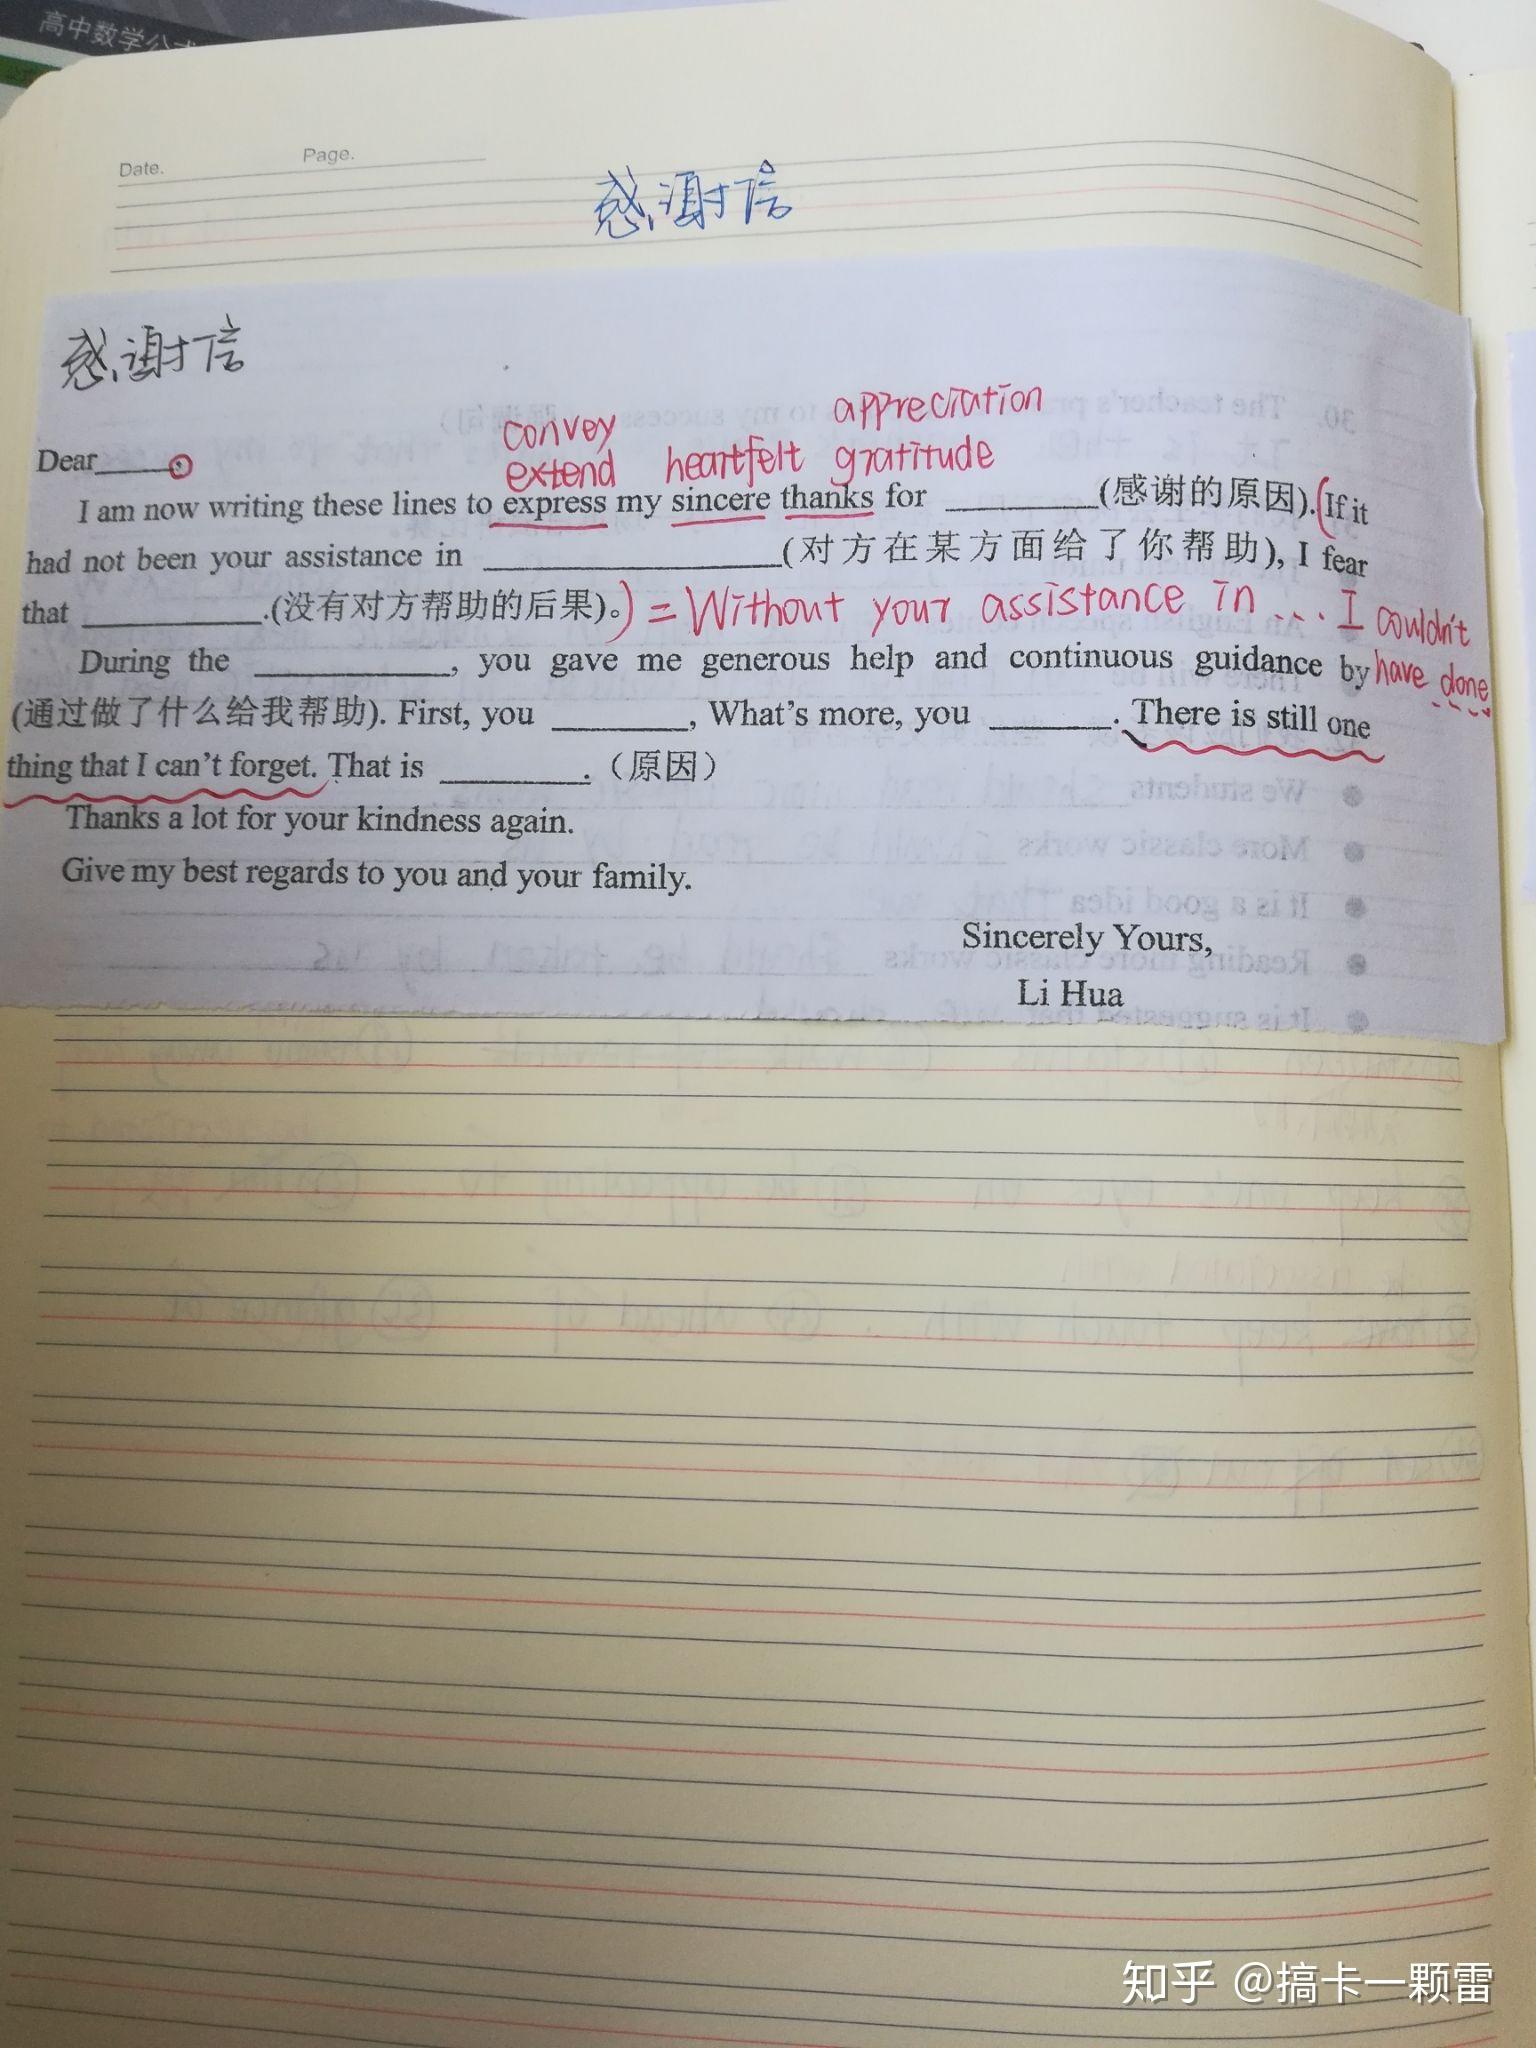 高中数学公式
Date.
Page.
感谢信
感谢信
appreciation
convey
extend heartfelt gratitude
Dear_____,
I am now writing these lines to express my sincere thanks for ________(感谢的原因).(If it
had not been your assistance in ________________(对方在某方面给了你帮助), I fear
that __________.(没有对方帮助的后果)。) = Without your assistance in ... I couldn't
have done
During the __________, you gave me generous help and continuous guidance by
(通过做了什么给我帮助). First, you _______, What's more, you ______. There is still one
thing that I can't forget. That is ________.（原因）
Thanks a lot for your kindness again.
Give my best regards to you and your family.
Sincerely Yours,
Li Hua
知乎 @搞卡一颗雷